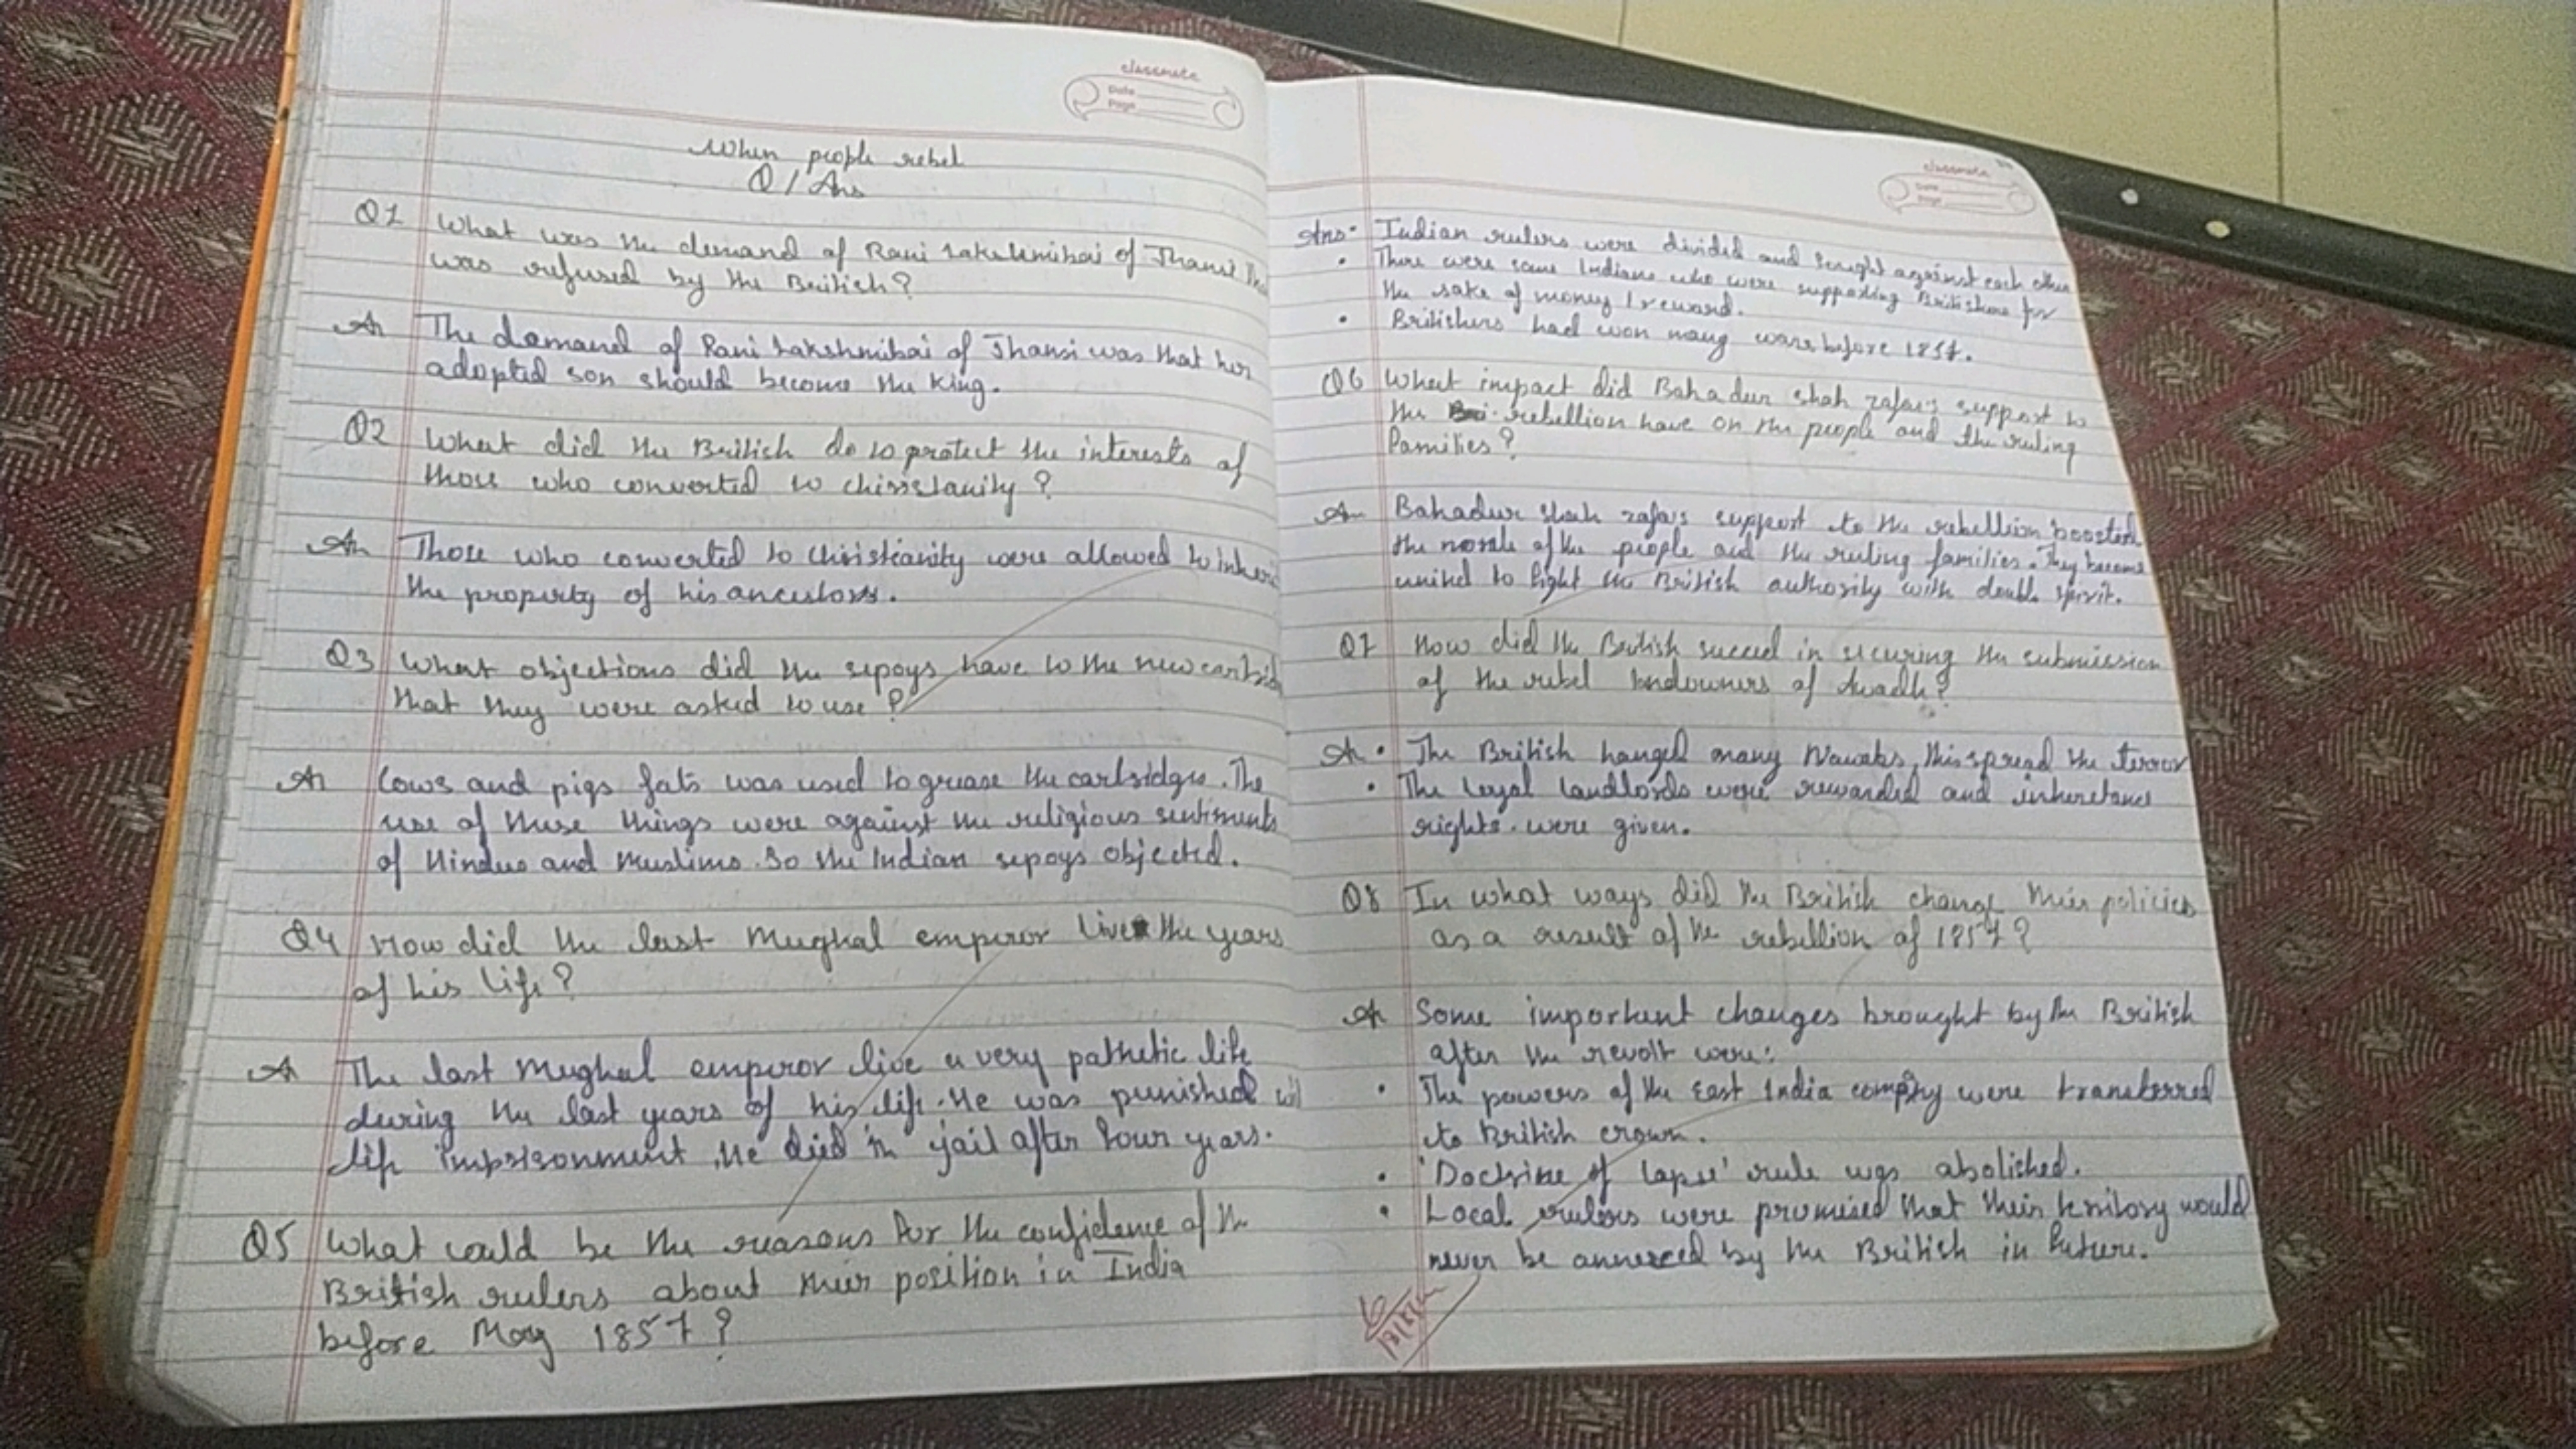 classmate
Date
Page
When people rebel
Q / Ans
Q1 What was the demand of Rani Lakshmibai of Jhansi
was refused by the British?
An The demand of Rani Lakshmibai of Jhansi was that her
adopted son should become the King.
Q2 What did the British do to protect the interests of
those who converted to chirstianity ?
An Those who converted to Christianity were allowed to
the property of his ancestors.
Q3 What objections did the sepoys have to the new
that they were asked to use ?
An Cows and pigs fats was used to grease the cartsidges. The
use of these things were against the religious sentiments
of Hindus and Muslims. So the Indian sepoys objected.
Q4 How did the last Mughal emperor live the years
of his life ?
An The last Mughal emperor live a very pathetic life
during the last years of his life. He was punished
life imprisonment. He died in jail after four years.
Q5 What could be the reasons for the confidence of the
British rulers about their position in India
before May 1857 ?
classmate
Date
Page
Ans • Indian rulers were divided and fought against each other
• There were some Indians who were supporting Britishers for
the sake of money / reward.
• Britishers had won many wars before 1857.
Q6 What impact did Bahadur shah zafar's support to
the rebellion have on the people and the ruling
families ?
An Bahadur shah zafar's support to the rebellion boosted
the morale of the people and the ruling families. They became
united to fight the British authority with double spirit.
Q7 How did the British succeed in securing the submission
of the rebel landowners of Awadh?
An • The British hanged many Nawabs, this spread the terror
• The loyal landlords were rewarded and inheretance
rights were given.
Q8 In what ways did the British change their policies
as a result of the rebellion of 1857 ?
An Some important changes brought by the British
after the revolt were:
• The powers of the East India company were transferred
to British crown.
• 'Doctrine of lapse' rule was abolished.
• Local rulers were promised that their territory would
never be annexed by the British in future.